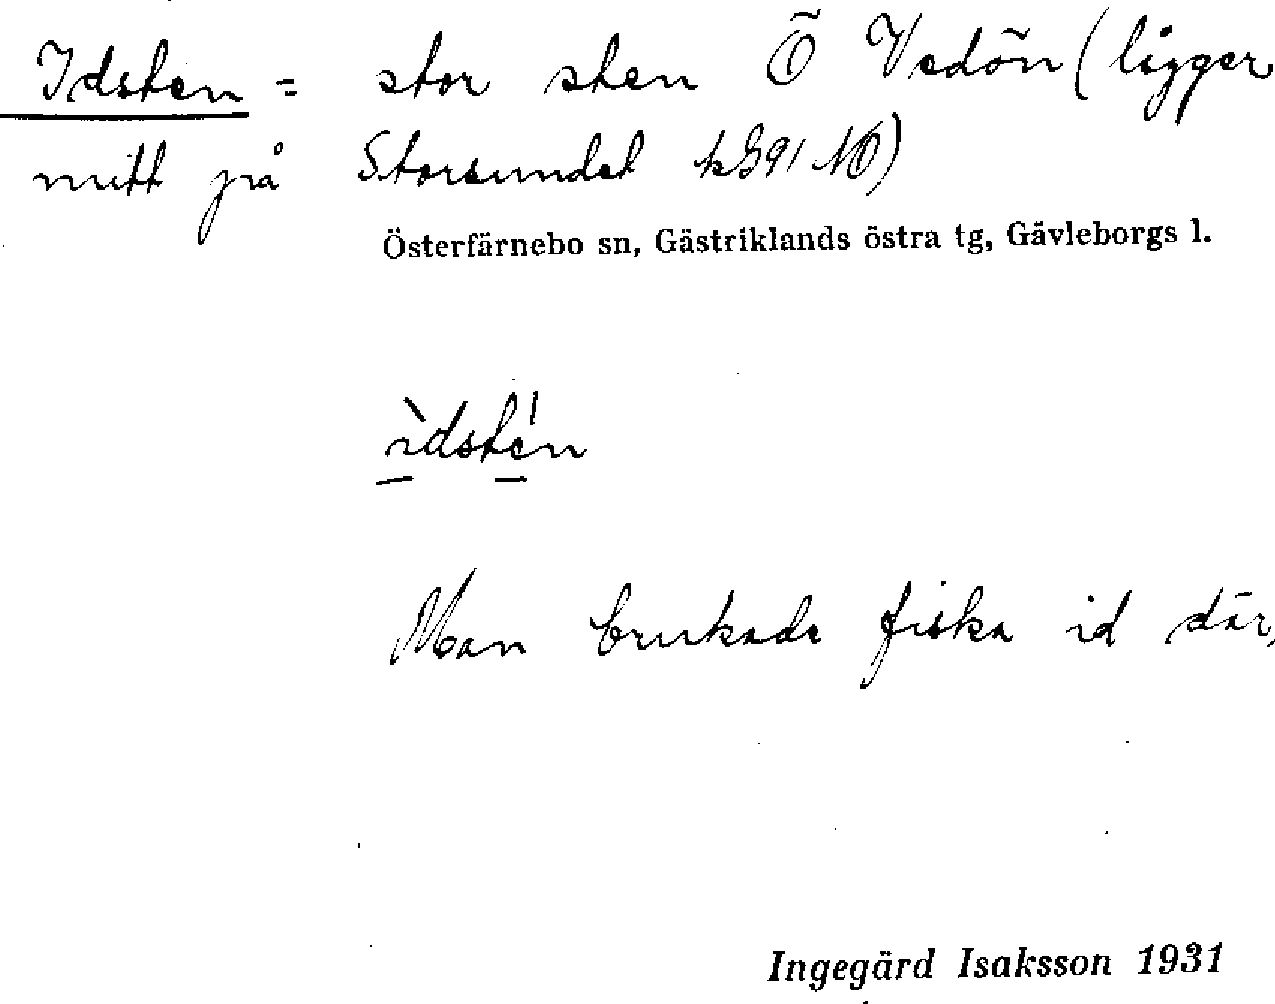 Idsten = stor sten Ö Vedön (ligger
mitt på Storsundet k991 NÖ)
Österfärnebo sn, Gästriklands östra tg, Gävleborgs l.
ìdsté́n
Man brukade fiska id där,
Ingegärd Isaksson 1931